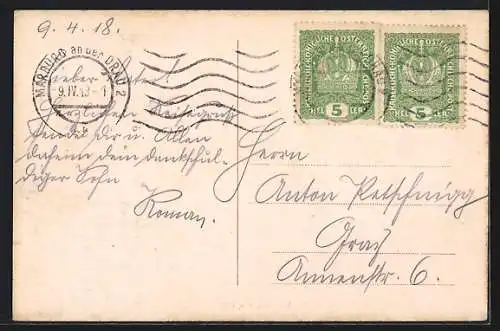 9. 4. 18.
MARBURG an der DRAU 2
9. IV. 18 - 1
Lieber Vater!
Herzlichen Reisegruß
sendet dir u. Allen
daheim dein dankschul-
diger Sohn
Roman.
KAISERLICHE KÖNIGLICHE ÖSTERREICHISCHE POST
HELLER 5
KAISERLICHE KÖNIGLICHE ÖSTERREICHISCHE POST
HELLER 5
Herrn
Anton Petschnigg
Graz
Annenstr. 6.